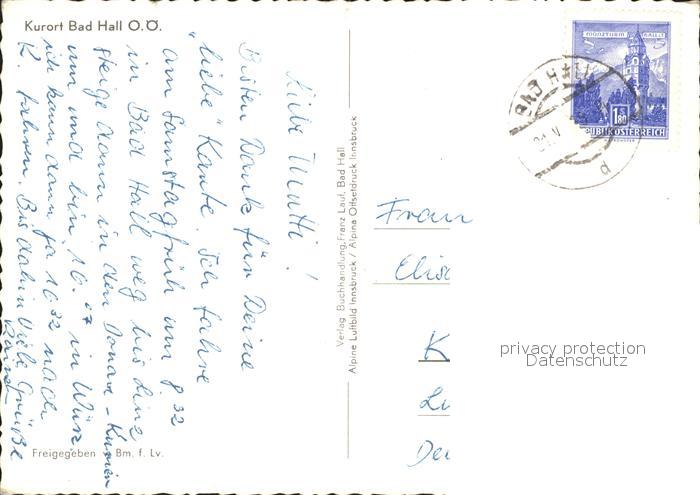 Kurort Bad Hall O.Ö.
Liebe Mutti!
Besten Dank für Deine
"liebe" Karte. Ich fahre
am Samstag früh um 8 32
in Bad Hall weg bis Linz
steige dann in den Donau-Kurier
um und bin 16 07 in Würz
ich kann dann ja 16 32 nach
K. fahren. Bis dahin viele Grüße
Freigegeben Bm. f. Lv.
Verlag Buchhandlung Franz Lauf, Bad Hall
Alpine Luftbild Innsbruck / Alpina Offsetdruck Innsbruck
MÜNZTURM HALL I.T.
S 1.80
REPUBLIK ÖSTERREICH
BAD HALL
21.V
d
Frau
Elise
K
Lu
Deu
privacy protection
Datenschutz